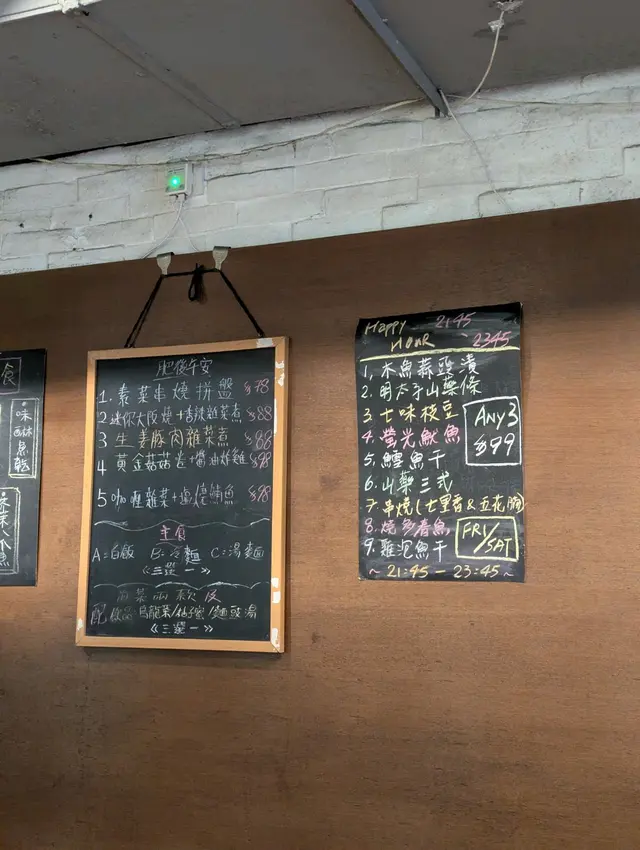 食
味
醂
魚
乾
肥後午安
1. 素菜串燒拼盤 $78
2 迷你大阪燒+香辣雜菜煮 $88
3 生姜豚肉雜菜煮 $88
4 黃金菇菇卷+醬油炸雞 $98
5 咖喱雜菜+鹽燒鯖魚 $98
主食
A=白飯 B=冷麵 C=湯麵
《三選一》
前菜兩款及
配飲品 烏龍茶/柚子蜜/麵豉湯
《三選一》
Happy 21:45
HOUR 2345
1, 木魚蒜豉漬
2. 明太子山藥條
3. 七味枝豆
4. 螢光魷魚
5, 鱈魚干
6. 山藥三式
7. 串燒(七里香&五花腩)
8. 燒多春魚
9. 雞泡魚干
ANY3
$99
FRI/
SAT
~ 21:45 - 23:45 ~